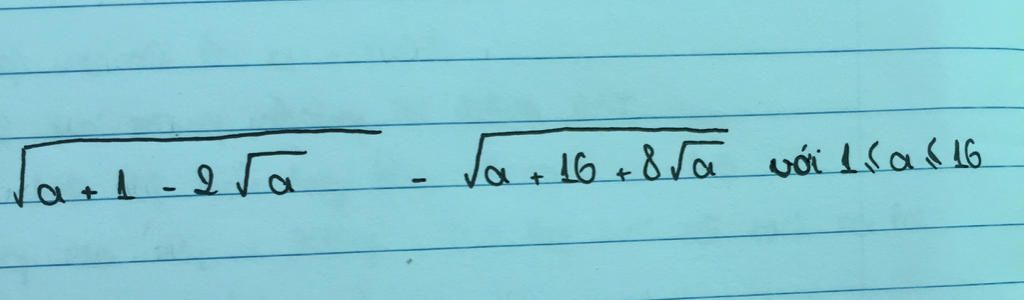 √(a + 1 - 2√a) - √(a + 16 + 8√a) với 1 ≤ a ≤ 16